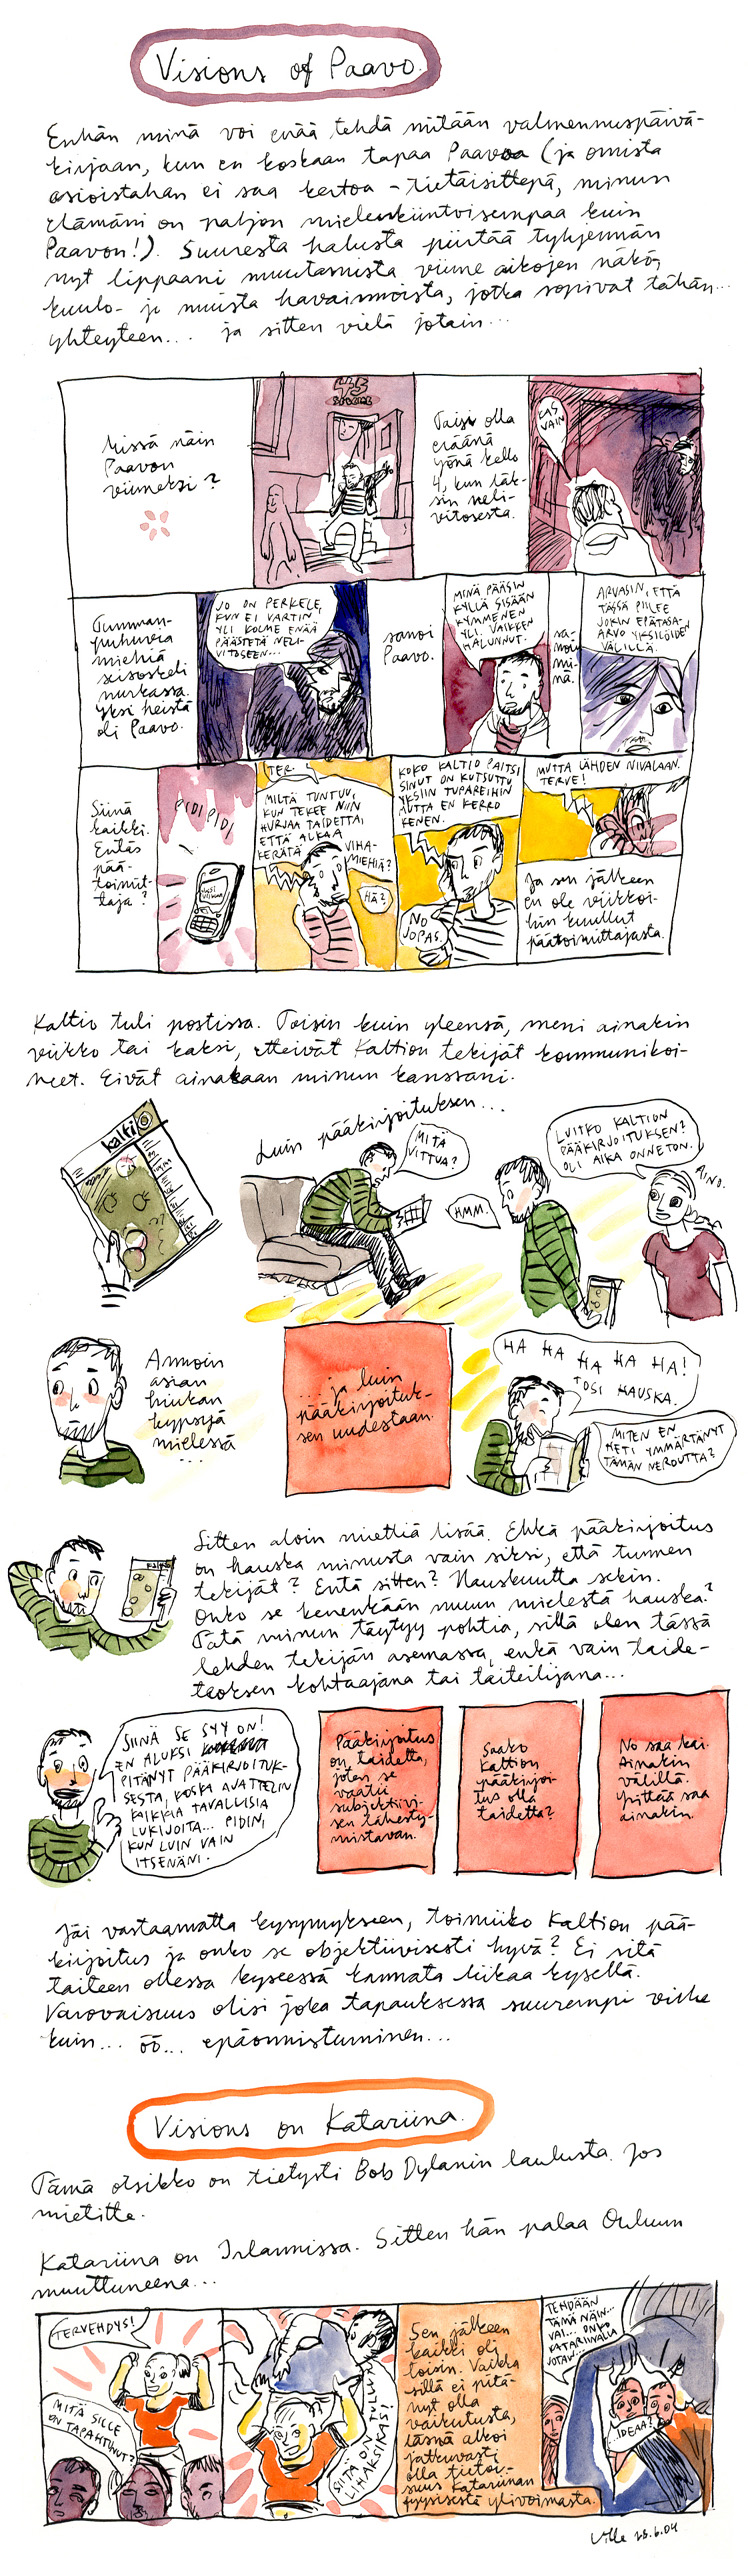 Visions of Paavo.
Enhän minä voi enää tehdä mitään valmennuspäivä-
kirjaan, kun en koskaan tapaa Paavoa (ja omista
asioistahan ei saa kertoa - tietäisittepä, minun
elämäni on paljon mielenkiintoisempaa kuin
Paavon!). Suuresta halusta piirtää tyhjennän
nyt lippaani muutamista viime aikojen näkö-,
kuulo- ja muista havainnoista, jotka sopivat tähän...
yhteyteen... ja sitten vielä jotain...
Missä näin
Paavon
viimeksi?
45
SPECIAL
Taisi olla
eräänä
yönä kello
4, kun läk-
sin neli-
vitosesta.
KAS
VAIN
Tumman-
puhuvia
miehiä
seisoskeli
nurkassa.
Yksi heistä
oli Paavo.
JO ON PERKELE,
KUN EI VARTIN
YLI KOLME ENÄÄ
PÄÄSTETÄ NELI-
VITOSEEN...
sanoi
Paavo.
MINÄ PÄÄSIN
KYLLÄ SISÄÄN
KYMMENEN
YLI. VAIKKEN
HALUNNUT.
sa-
noin
mi-
nä.
ARVASIN, ETTÄ
TÄSSÄ PIILEE
JOKIN EPÄTASA-
ARVO YKSILÖIDEN
VÄLILLÄ.
Siinä
kaikki.
Entäs
pää-
toimit-
taja?
PIDI PIDI
TER.
MILTÄ TUNTUU,
KUN TEKEE NIIN
HURJAA TAIDETTA,
ETTÄ ALKAA
KERÄTÄ
VIHA-
MIEHIÄ?
HÄ?
KOKO KALTIO PAITSI
SINUT ON KUTSUTTU
YKSIIN TUPAREIHIN
MUTTA EN KERRO
KENEN.
NO
JOPAS.
MUTTA LÄHDEN NIVALAAN.
TERVE!
Ja sen jälkeen
en ole viikkoi-
hin kuullut
päätoimittajasta.
Kaltio tuli postissa. Toisin kuin yleensä, meni ainakin
viikko tai kaksi, etteivät Kaltion tekijät kommunikoi-
neet. Eivät ainakaan minun kanssani.
kaltio
Luin pääkirjoituksen...
MITÄ
VITTUA?
HMM.
LUITKO KALTION
PÄÄKIRJOITUKSEN?
OLI AIKA ONNETON.
AINO.
Annoin
asian
hiukan
kypsyä
mielessä
...
... ja luin
pääkirjoituk-
sen uudestaan.
HA HA HA HA HA!
TOSI HAUSKA.
MITEN EN
HETI YMMÄRTÄNYT
TÄMÄN NEROUTTA?
Sitten aloin miettiä lisää. Ehkä pääkirjoitus
on hauska minusta vain siksi, että tunnen
tekijät? Entä sitten? Hauskuutta sekin.
Onko se kenenkään muun mielestä hauska?
Tätä minun täytyy pohtia, sillä olen tässä
lehden tekijän asemassa, enkä vain taide-
teoksen kohtaajana tai taiteilijana...
SIINÄ SE SYY ON!
EN ALUKSI
PITÄNYT PÄÄKIRJOITUK-
SESTA, KOSKA AJATTELIN
KAIKKIA TAVALLISIA
LUKIJOITA... PIDIN,
KUN LUIN VAIN
ITSENÄNI.
Pääkirjoitus
on taidetta,
joten se
vaatii
subjektiivi-
sen lähesty-
mistavan.
Saako
Kaltion
pääkirjoi-
tus olla
taidetta?
No saa kai.
Ainakin
välillä.
Yrittää saa
ainakin.
Jäi vastaamatta kysymykseen, toimiiko Kaltion pää-
kirjoitus ja onko se objektiivisesti hyvä? Ei sitä
taiteen ollessa kyseessä kannata liikaa kysellä.
Varovaisuus olisi joka tapauksessa suurempi virhe
kuin... öö... epäonnistuminen...
Visions on Katariina.
Tämä otsikko on tietysti Bob Dylanin laulusta. Jos
mietitte.
Katariina on Irlannissa. Sitten hän palaa Ouluun
muuttuneena...
TERVEHDYS!
MITÄ SILLE
ON TAPAHTUNUT?
SIITÄ ON
TULLUT
LIHAKSIKAS!
Sen jälkeen
kaikki oli
toisin. Vaikka
sillä ei pitä-
nyt olla
vaikutusta,
läsnä alkoi
jatkuvasti
olla tietoi-
suus Katariinan
fyysisestä ylivoimasta.
TEHDÄÄN
TÄMÄ NÄIN...
VAI... ONKO
KATARIINALLA
JOTAIN
IDEAA?
Ville 28.6.04